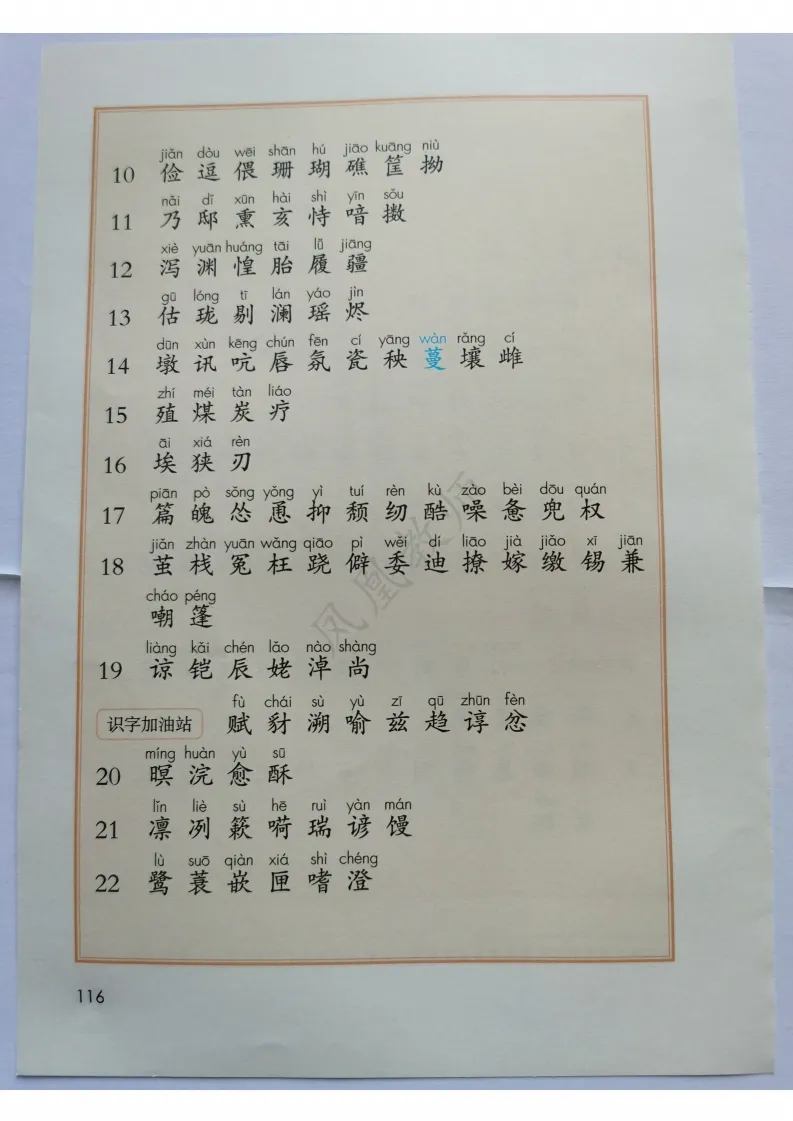 jiǎn dòu wēi shān hú jiāo kuāng niù
10 俭 逗 偎 珊 瑚 礁 筐 拗
nǎi dǐ xūn hài shì yīn sǒu
11 乃 邸 熏 亥 恃 喑 擞
xiè yuān huáng tāi lǚ jiāng
12 泻 渊 惶 胎 履 疆
gū lóng tī lán yáo jìn
13 估 珑 剔 澜 瑶 烬
dūn xùn kēng chún fēn cí yāng wàn rǎng cí
14 墩 讯 吭 唇 氛 瓷 秧 蔓 壤 雌
zhí méi tàn liáo
15 殖 煤 炭 疗
āi xiá rèn
16 埃 狭 刃
piān pò sǒng yǒng yì tuí rèn kù zào bèi dōu quán
17 篇 魄 怂 恿 抑 颓 纫 酷 噪 惫 兜 权
jiǎn zhàn yuān wǎng qiāo pì wěi dí liāo jià jiǎo xī jiān
18 茧 栈 冤 枉 跷 僻 委 迪 撩 嫁 缴 锡 兼
cháo péng
嘲 篷
liàng kǎi chén lǎo nào shàng
19 谅 铠 辰 姥 淖 尚
fù chái sù yù zī qū zhūn fèn
识字加油站 赋 豺 溯 喻 兹 趋 谆 忿
míng huàn yù sū
20 暝 浣 愈 酥
lǐn liè sù hē ruì yàn mán
21 凛 冽 簌 嗬 瑞 谚 馒
lù suō qiàn xiá shì chéng
22 鹭 蓑 嵌 匣 嗜 澄
凤凰教师
116